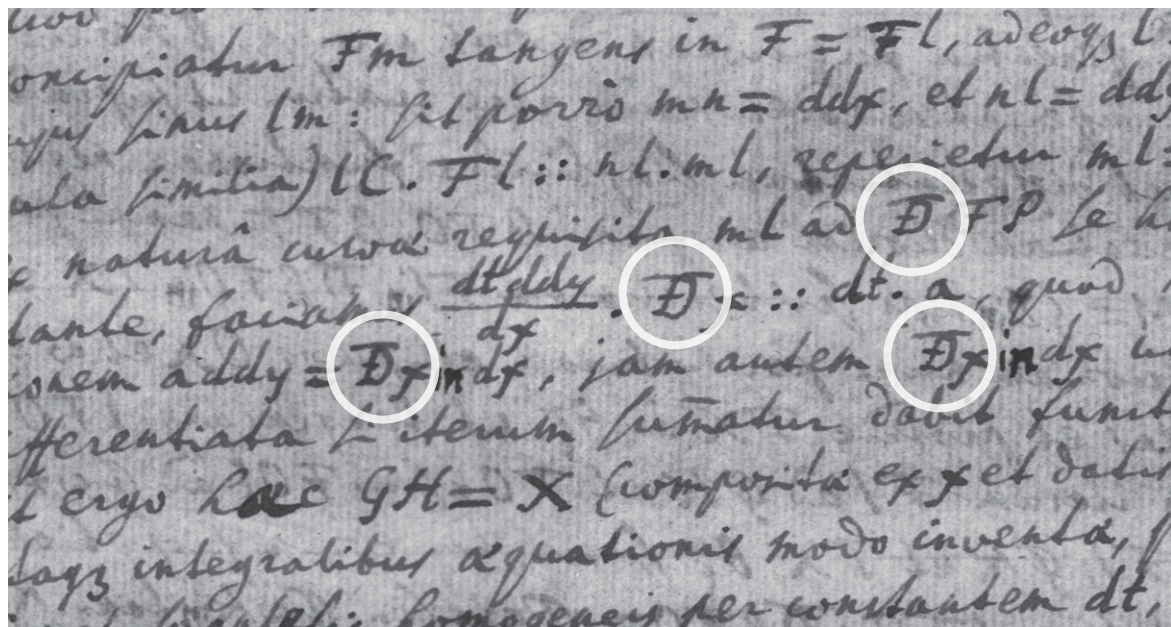 oncipiatur Fm tangens in F = Fl, adeoqȝ l
ujus sinus lm: sit porrò mn = ddx, et nl = ddy
ula similia) lC. Fl :: nl. ml, reperietur ml
naturâ curvæ requisita ml ad Đ FP se h
tante, faciamus dtddy/dx . Đx :: dt. a, quod
ionem addy = Đx in dx, jam autem Đx in dx u
fferentiata iterum sum̄atur dabit
t ergo hæc GH = X (composita ex x et datis
daqȝ integralibus æquationis modo inventa,
homogeneis per constantem dt,